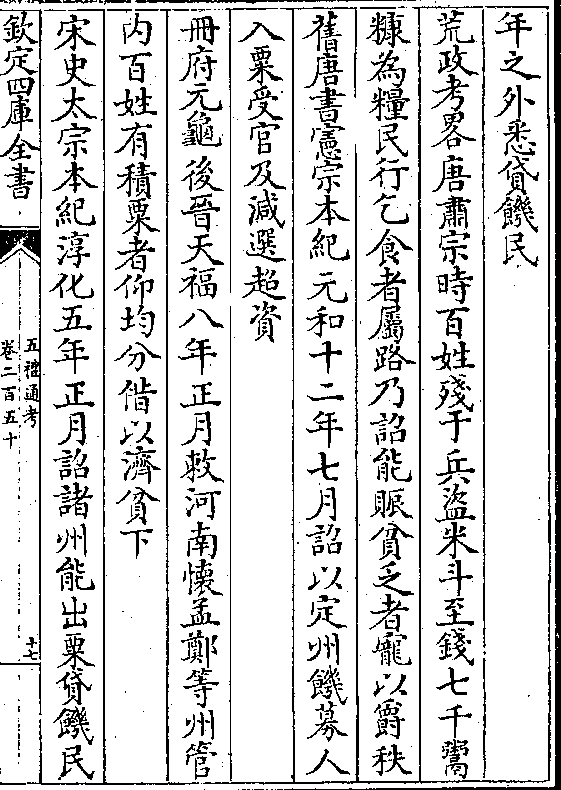 年之外悉貸饑民
荒政考畧唐肅宗時百姓殘于兵盜米斗至錢七千鬻
糠為糧民行乞食者屬路乃詔能賑貧乏者寵以爵秩
舊唐書憲宗本紀元和十二年七月詔以定州饑募人
入粟受官及減選超資
冊府元龜後晉天福八年正月敕河南懷孟鄭等州管
内百姓有積粟者仰均分偕以濟貧下
宋史太宗本紀淳化五年正月詔諸州能出粟貸饑民
欽定四庫全書
五禮通考
卷二百五十
十七